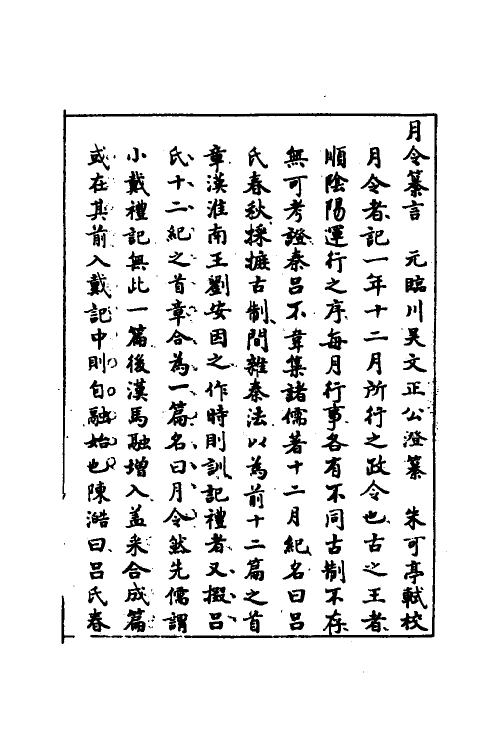 月令纂言　元臨川吴文正公澄纂　朱可亭軾校
月令者記一年十二月所行之政令也古之王者
順陰陽運行之序每月行事各有不同古制不存
無可考證秦吕不韋集諸儒著十二月紀名曰吕
氏春秋採摭古制間雜秦法以為前十二篇之首
章漢淮南王劉安因之作時則訓記禮者又掇吕
氏十二紀之首章合為一篇名曰月令然先儒謂
小戴禮記無此一篇後漢馬融增入盖采合成篇
或在其前入戴記中則自融始也陳澔曰吕氏春